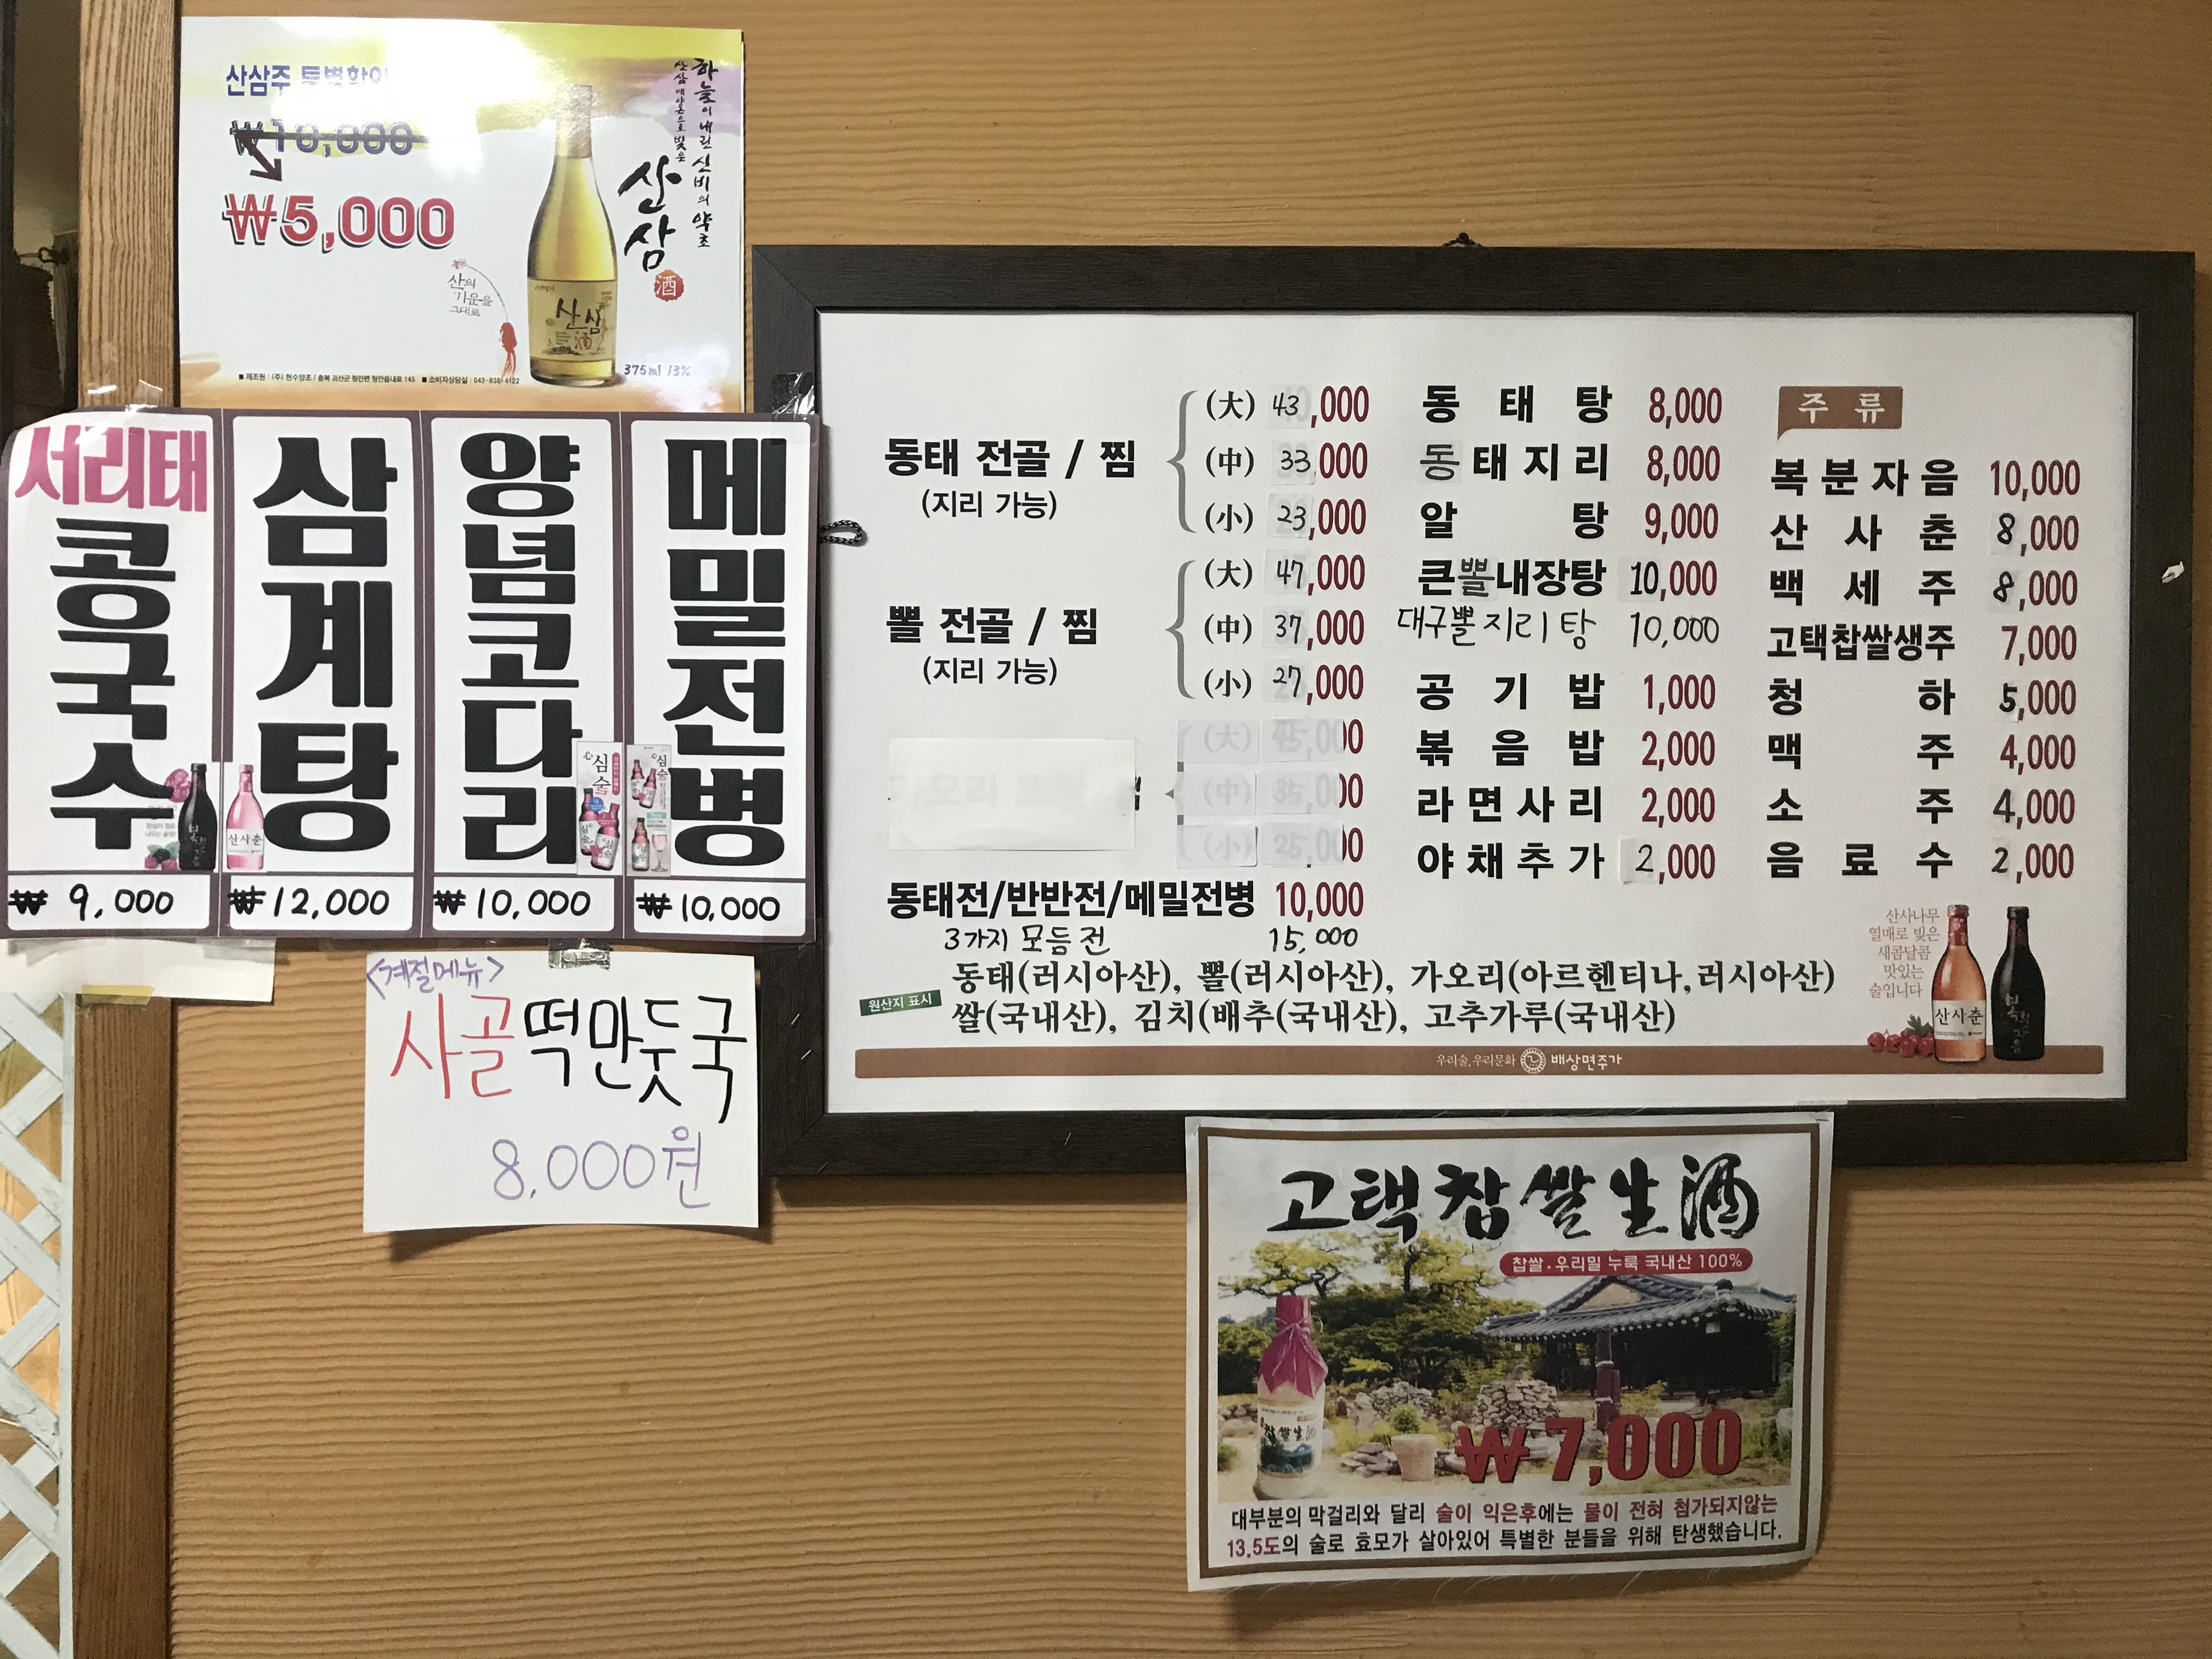 산삼주 특별할인
₩10,000
₩5,000
하늘이 내린 신비의 약초
산삼 배양근으로 빚은
산삼
酒
산의
기운을
그대로
산삼
酒
375ml 13%
■ 제조원 : (주) 현수양조 / 충북 괴산군 청안면 청안읍내로 145 ■ 소비자상담실 : 043-838-4122
서리태
콩국수
₩ 9,000
삼계탕
₩ 12,000
양념코다리
₩ 10,000
메밀전병
₩ 10,000
산사춘
심술
심술
<계절메뉴>
사골떡만둣국
8,000원
동태 전골 / 찜
(지리 가능)
(大) 43,000
(中) 33,000
(小) 23,000
뽈 전골 / 찜
(지리 가능)
(大) 47,000
(中) 37,000
(小) 27,000
가오리
(大) 45,000
(中) 35,000
(小) 25,000
동태전/반반전/메밀전병 10,000
3가지 모듬전 15,000
동태탕 8,000
동태지리 8,000
알탕 9,000
큰뽈내장탕 10,000
대구뽈지리탕 10,000
공기밥 1,000
볶음밥 2,000
라면사리 2,000
야채추가 2,000
주류
복분자음 10,000
산사춘 8,000
백세주 8,000
고택찹쌀생주 7,000
청하 5,000
맥주 4,000
소주 4,000
음료수 2,000
산사나무
열매로 빚은
새콤달콤
맛있는
술입니다
산사춘
원산지 표시
동태(러시아산), 뽈(러시아산), 가오리(아르헨티나,러시아산)
쌀(국내산), 김치(배추(국내산), 고추가루(국내산)
우리술, 우리문화 배상면주가
고택찹쌀生酒
찹쌀·우리밀 누룩 국내산 100%
찹쌀生酒
₩7,000
대부분의 막걸리와 달리 술이 익은후에는 물이 전혀 첨가되지않는
13.5도의 술로 효모가 살아있어 특별한 분들을 위해 탄생했습니다.